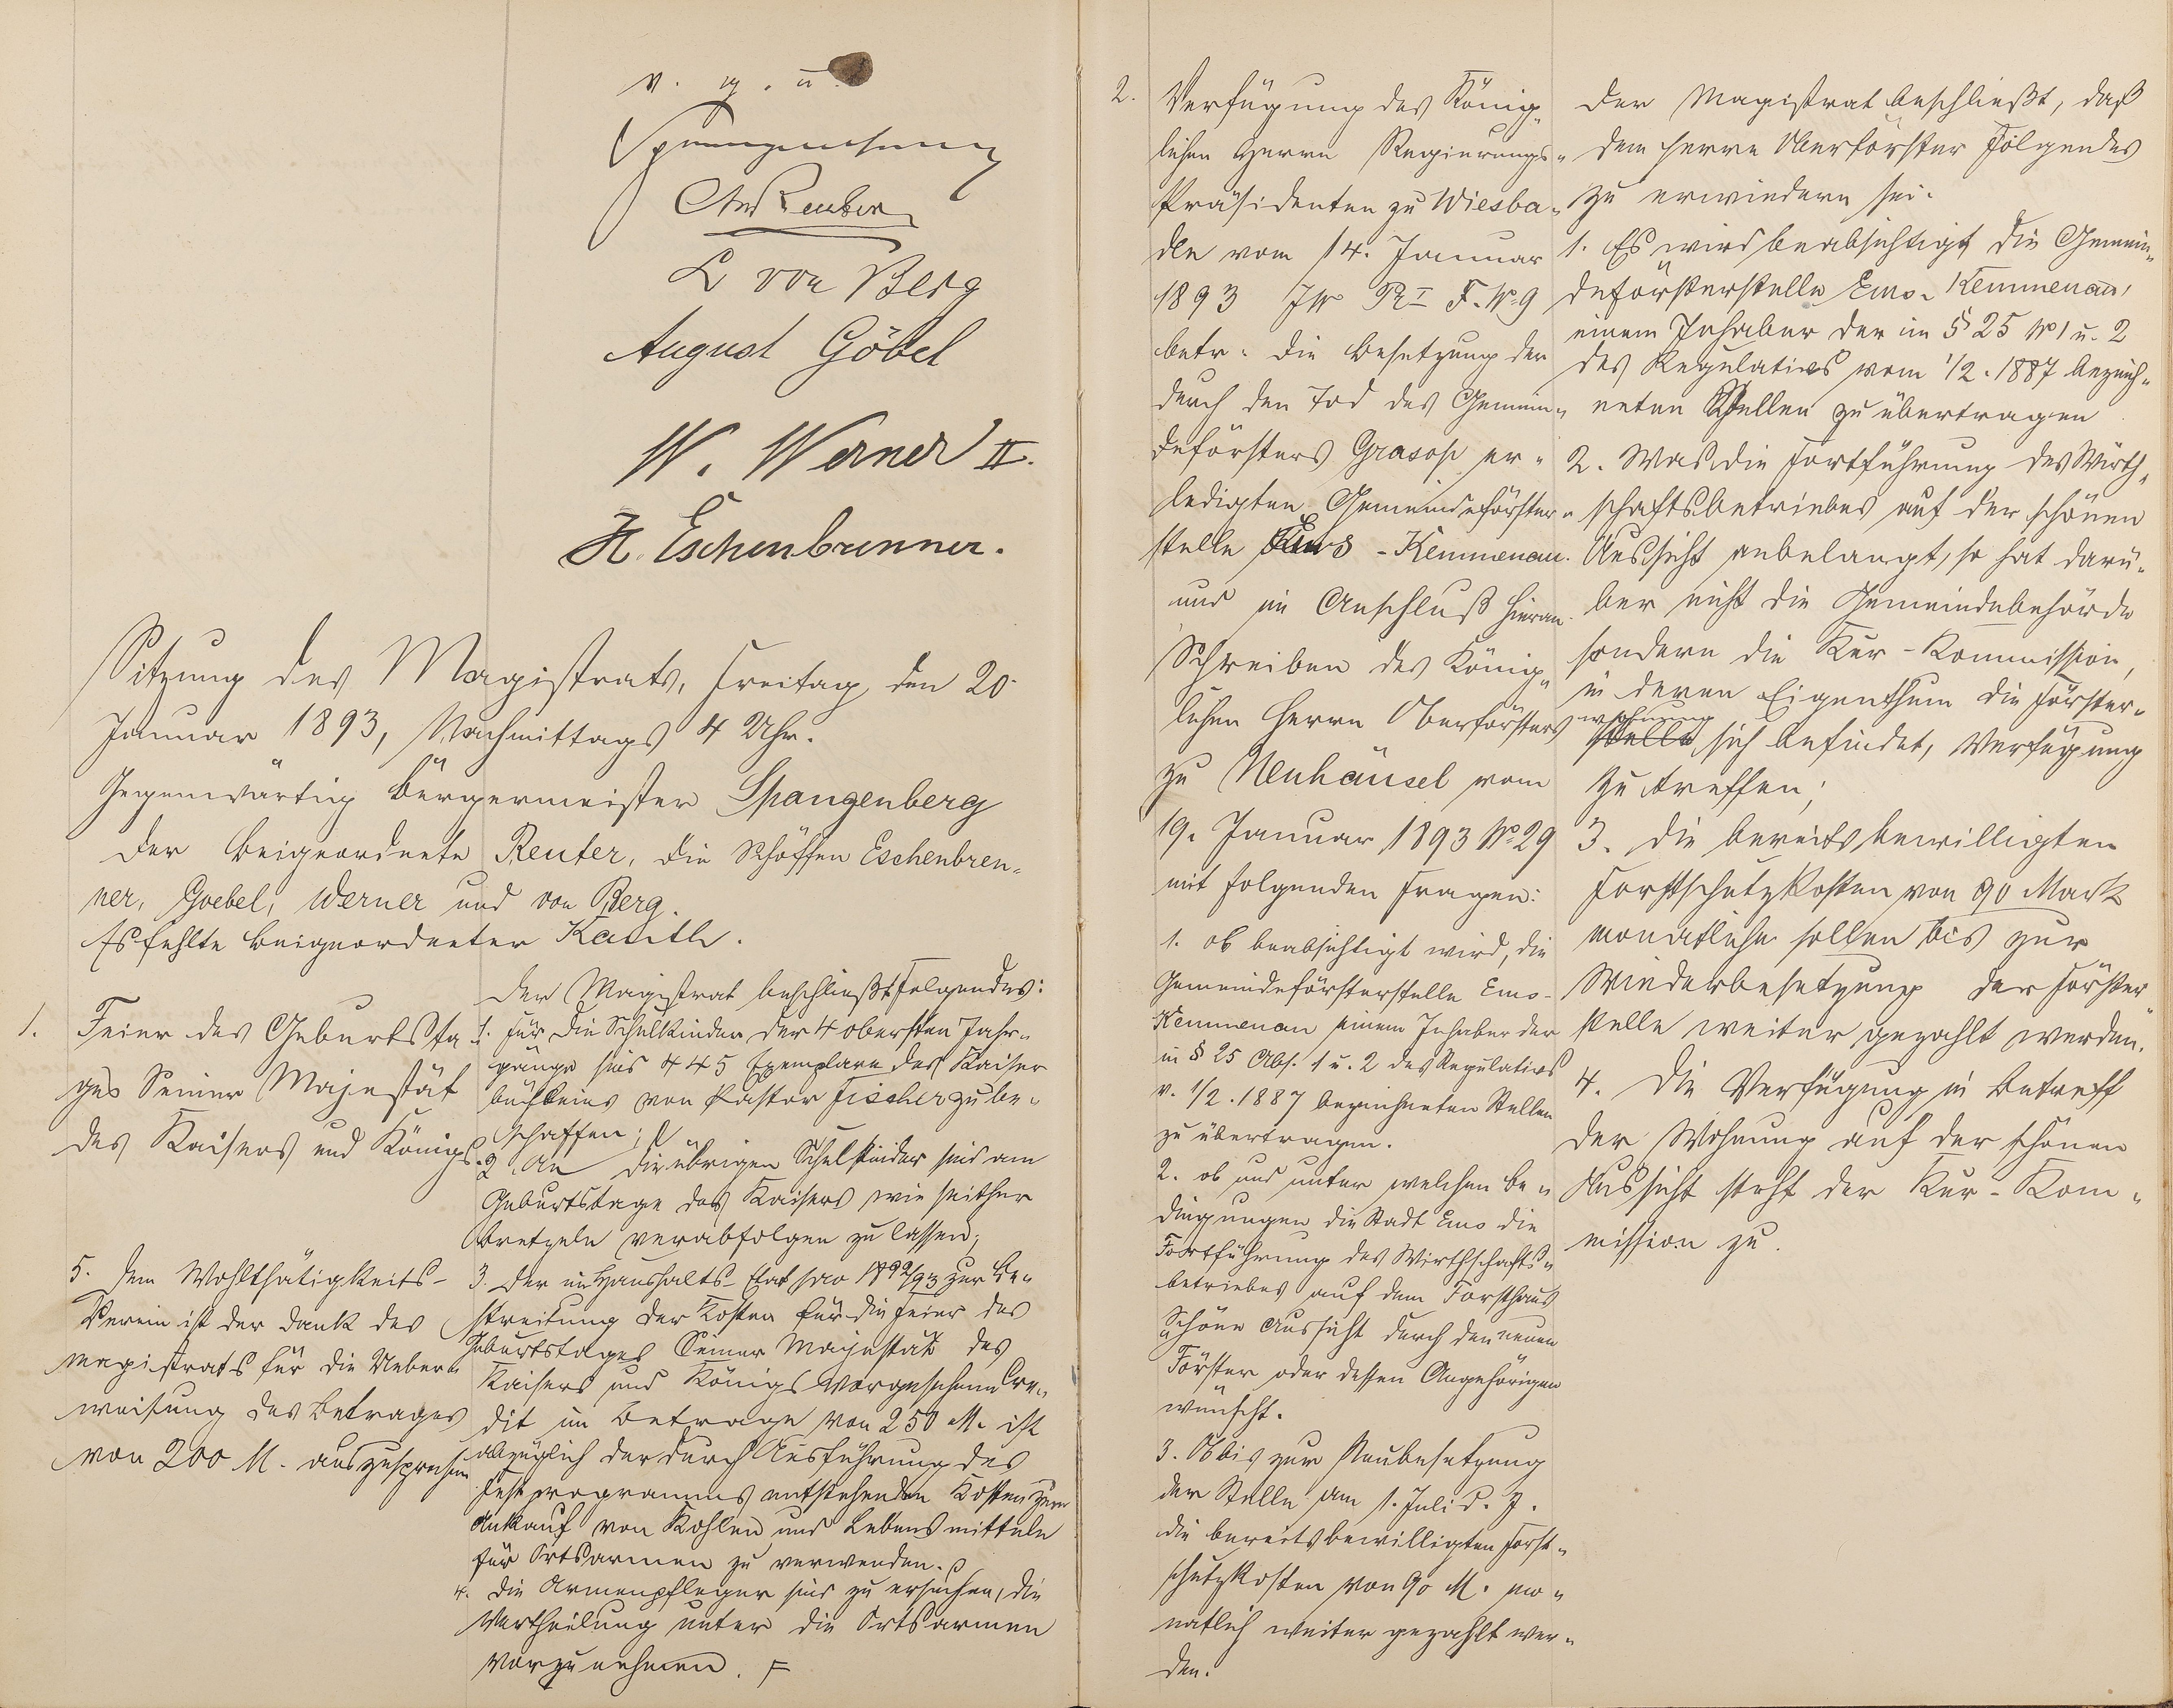 v. g. u.
Spangenberg
Reuter
L von Berg
August Göbel
W. Werner II.
H. Eschenbrenner.
Sitzung des Magistrats, Freitag, den 20.
Januar 1893, Nachmittags 4 Uhr.
Gegenwärtig Bürgermeister Spangenberg
der Beigeordnete Reuter, die Schöffen Eschenbren-
ner, Goebel, Werner und von Berg.
Es fehlte Beigeordneter Kauth.
1. Feier des Geburtsta
ges Seiner Majestät
des Kaisers und Königs.
Der Magistrat beschließt Folgendes:
1. für die Schulkinder der 4 obersten Jahr-
gänge sind 445 Exemplare des Kaiser
büchleins von Pastor Fischer zu be-
schaffen;
2. An die übrigen Schulkinder sind am
Geburtstage des Kaisers wie seither
Bretzeln verabfolgen zu lassen;
3. Der im Haushalts-Etat pro 1892/93 zur Be-
streitung der Kosten für die Feier des
Geburtstages Seiner Majestät des
Kaisers und Königs vorgesehene Cre-
dit im Betrage von 250 M. ist
abzüglich der durch Ausführung des
Festprogramms entstehenden Kosten zum
Ankauf von Kohlen und Lebensmitteln
für Ortsarmen zu verwenden.
4. Die Armenpfleger sind zu ersuchen, die
Vertheilung unter die Ortsarmen
vorzunehmen. F
5. Dem Wohlthätigkeits-
Verein ist der Dank des
Magistrats für die Ueber-
weisung des Betrages
von 200 M. auszusprechen
2. Verfügung des König-
lichen Herrn Regierungs-
Präsidenten zu Wiesba-
den vom 14. Januar
1893 Pr I F. No 9
betr. die Besetzung der
durch den Tod des Gemein-
deförsters er-
ledigten Gemeindeförster-
stelle Ems-Kemmenau.
und im Anschluß hieran
Schreiben des König-
lichen Herrn Oberförsters
zu Neuhäusel vom
19. Januar 1893 No 29
mit folgenden Fragen:
1. ob beabsichtigt wird, die
Gemeindeförsterstelle Ems-
Kemmenau einem Inhaber der
in § 25 Abs. 1 u. 2 des Regulativs
v. 1/2. 1887 bezeichneten Stellen
zu übertragen.
2. ob und unter welchen Be-
dingungen die Stadt Ems die
Fortführung des Wirthschafts-
betriebes auf dem Forsthaus
Schöne Aussicht durch den neuen
Förster oder dessen Angehörigen
wünscht.
3. Ob bis zur Neubesetzung
der Stelle am 1. Juli d. J.
die bereits bewilligten Forst-
schutzkosten von 90 M. mo-
natlich weiter gezahlt wer-
den.
Der Magistrat beschließt, daß
dem Herrn Oberförster Folgendes
zu erwiedern sei.
1. Es wird beabsichtigt die Gemein-
deförsterstelle Ems-Kemmenau,
einem Inhaber der im § 25 No 1 u. 2
des Regulativs vom 1/2. 1887 bezeich-
neten Stellen zu übertragen
2. Was die Fortführung des Wirth-
schaftsbetriebes auf der schönen
Aussicht anbelangt, so hat darü-
ber nicht die Gemeindebehörde
sondern die Kur-Kommission,
in deren Eigenthum die Förster-
wohnung
stelle sich befindet, Verfügung
zu treffen;
3. die bereits bewilligten
Forstschutzkosten von 90 Mark
monatlich sollen bis zur
Wiederbesetzung der Förster
stelle weiter gezahlt werden.
4. Die Verfügung in Betreff
der Wohnung auf der schönen
Aussicht steht der Kur-Kom-
mission zu.